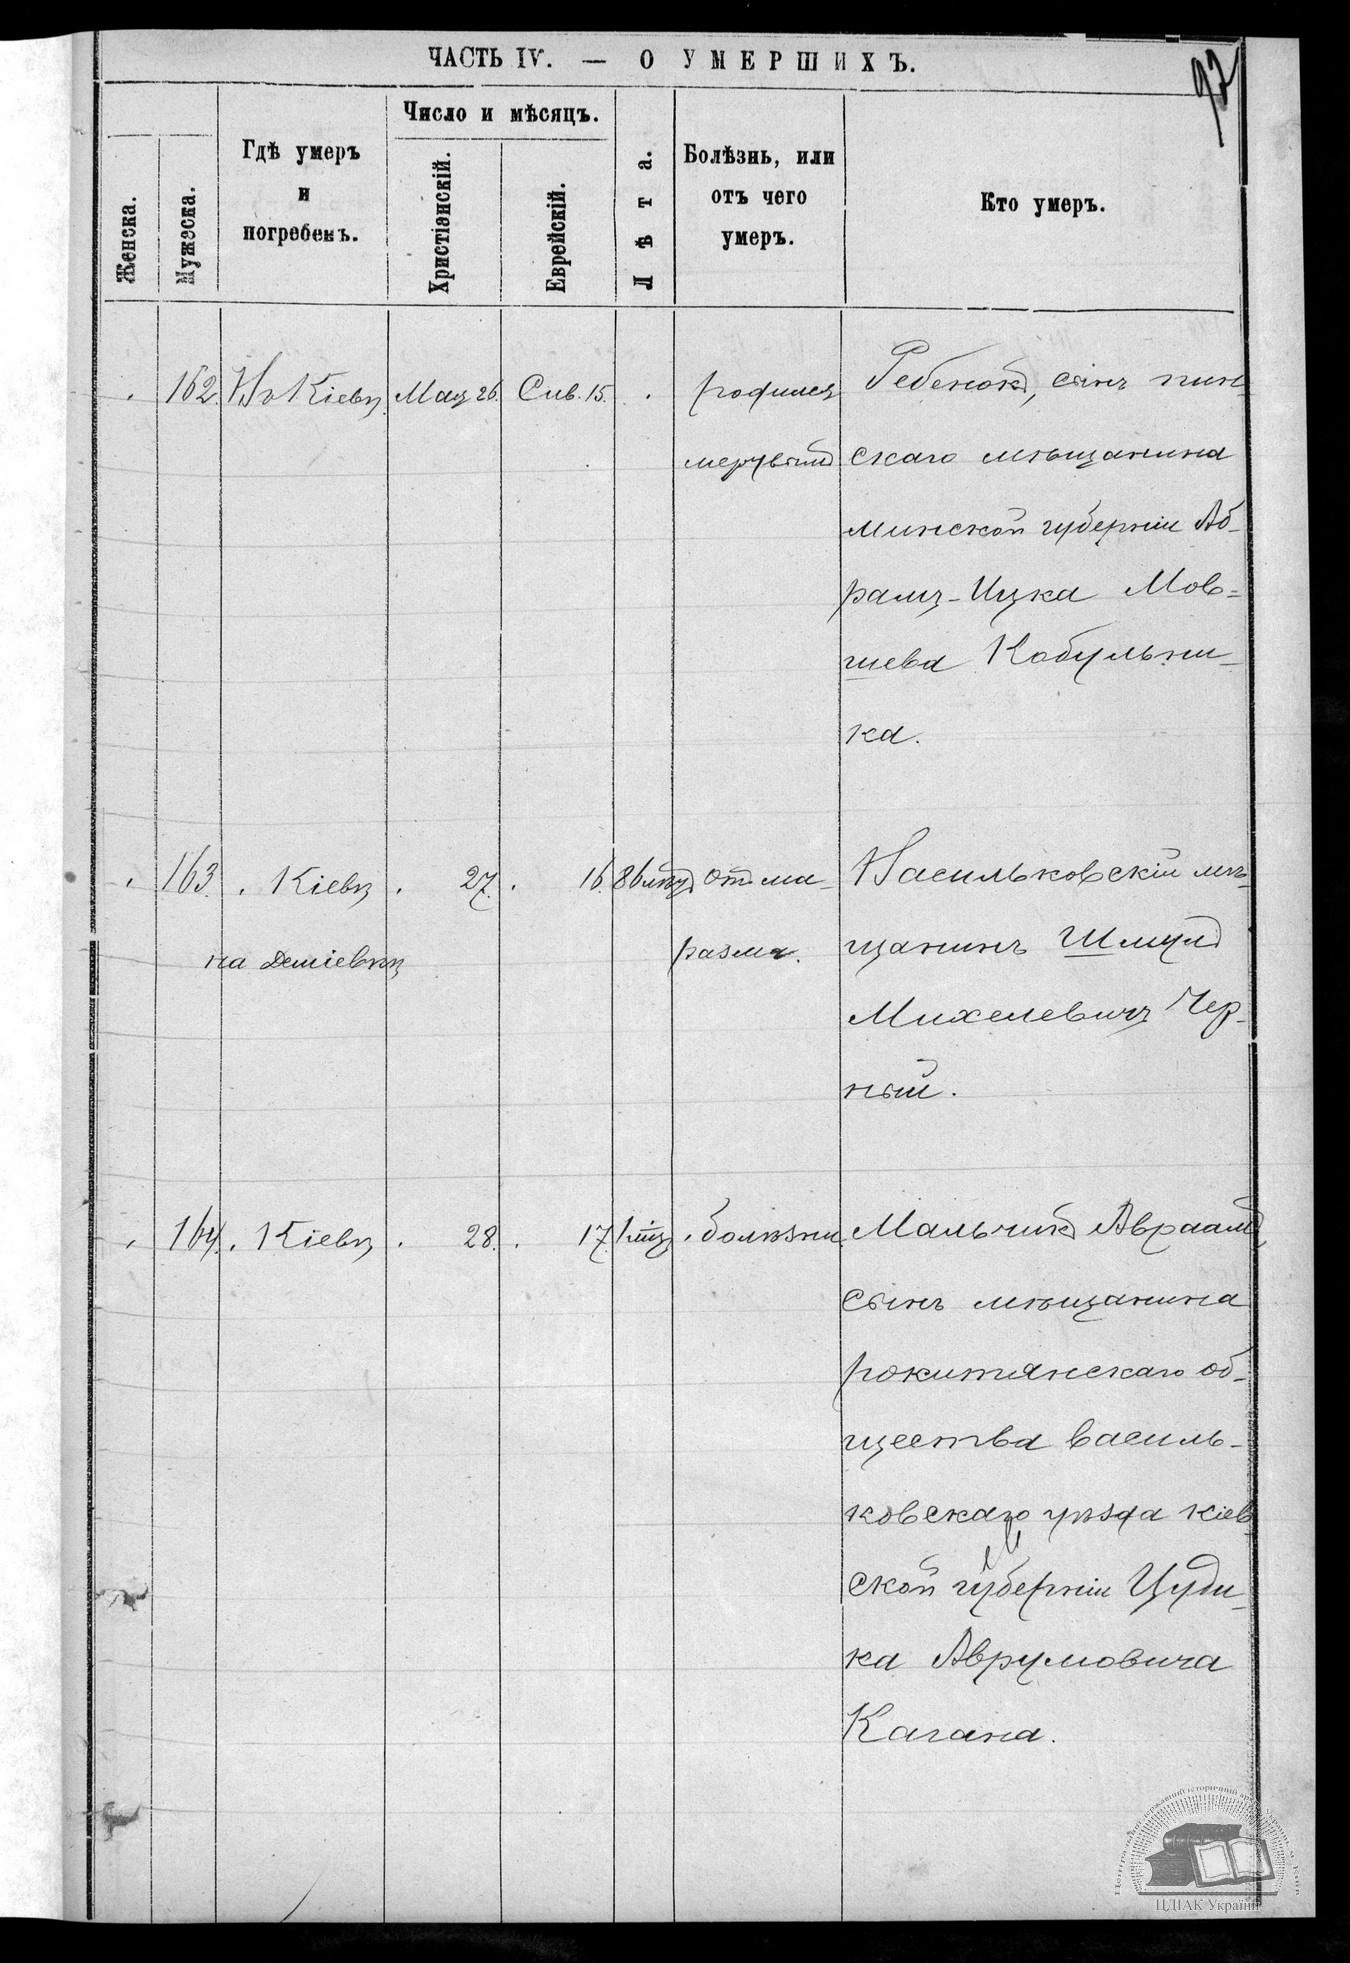 ЧАСТЬ IV. — О УМЕРШИХЪ.
92
Женска.
Мужеска.
Гдѣ умеръ
и
погребенъ.
Число и мѣсяцъ.
Христіанскій.
Еврейскій.
Лѣта.
Болѣзнь, или
отъ чего
умеръ.
Кто умеръ.
162. Въ Кіевѣ Мая 26. Сив. 15. родился Ребенокъ, сынъ пин-
мертвымъ скаго мѣщанина
минской губерніи Аб-
рамъ-Ицка Мов-
шева Кобульни-
ка.
163. Кіевѣ 27. 16. 86 лѣтъ отъ ма- Васильковскій мѣ-
на Деміевкѣ разма. щанинъ Шмулъ
Михелевичъ Чер-
ный.
164. Кіевѣ 28. 17. 1 мѣц. болѣзни. Мальчикъ Авраамъ,
сынъ мѣщанина
рокитянскаго об-
щества василь-
ковскаго уѣзда кіев
ской губерніи Цуди-
ка Аврумовича
Кагана.
ЦДІАК України